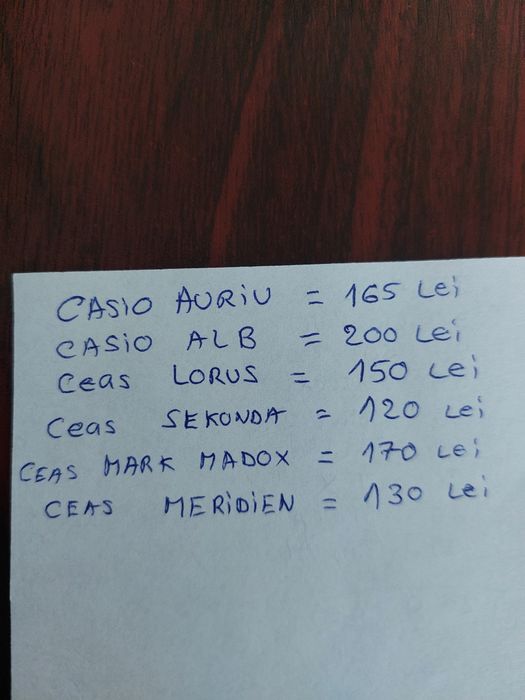 CASIO AURIU = 165 Lei
CASIO ALB = 200 Lei
Ceas LORUS = 150 Lei
Ceas SEKONDA = 120 Lei
CEAS MARK MADOX = 170 Lei
CEAS MERIDIEN = 130 Lei